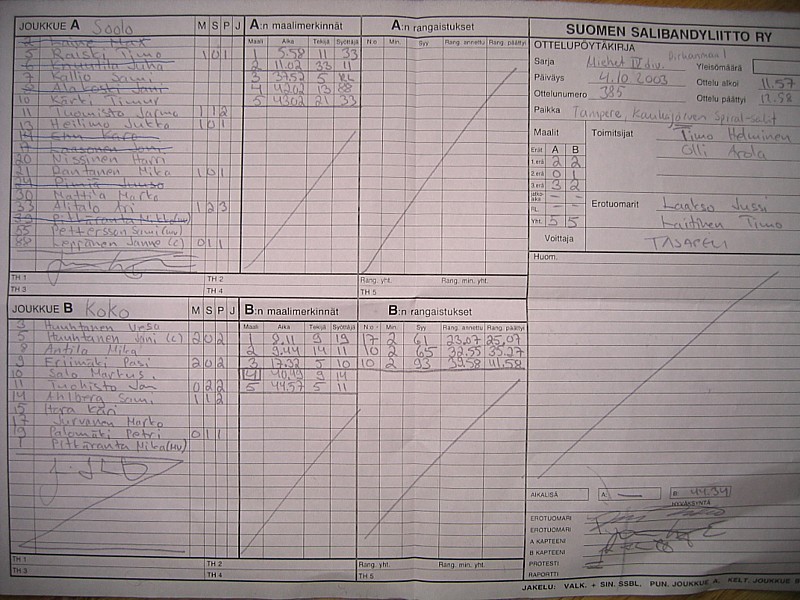 JOUKKUE A Soolo M S P J
2 Laine Max
5 Raiski Timo 1 0 1
6 Juha
7 Kallio Sami
8 Alakoski Jani
10 Kärki Timur
11 Tuomisto Jarmo 1 1 2
13 Heilimo Jukka 1 0 1
17 Laasonen Joni
20 Nissinen Harri
21 Rantanen Mika 1 0 1
30 Mattila Marko
33 Alitalo Ari 1 2 3
55 Pettersson Sami (mv)
88 Leppänen Janne (c) 0 1 1
TH 1 TH 2
TH 3 TH 4
A:n maalimerkinnät
Maali Aika Tekijä Syöttäjä
1 5.58 11 33
2 11.02 33 11
3 37.52 5 RL
4 42.02 13 88
5 43.02 21 33
A:n rangaistukset
N:o Min. Syy Rang. annettu Rang. päättyi
Rang. yht. Rang. min. yht.
TH 5
JOUKKUE B Koko M S P J
3 Huuhtanen Urso
5 Huuhtanen Jani (c) 2 0 2
8 Antila Mika
9 Eriimäki Pasi 2 0 2
10 Salo Markus
11 Tuohisto Jan 0 2 2
14 Ahlberg Sami 1 1 2
15 Hara Kari
17 Jurvanen Marko
19 Palomäki Petri 0 1 1
1 Pittäranta Mika (mv)
TH 1 TH 2
TH 3 TH 4
B:n maalimerkinnät
Maali Aika Tekijä Syöttäjä
1 8.11 9 19
2 9.44 14 11
3 17.32 5 10
4 40.49 9 14
5 44.57 5 11
B:n rangaistukset
N:o Min. Syy Rang. annettu Rang. päättyi
17 2 61 23.07 25.07
10 2 65 33.27
10 2 93 39.58 41.58
Rang. yht. Rang. min. yht.
TH 5
SUOMEN SALIBANDYLIITTO RY
OTTELUPÖYTÄKIRJA
Sarja Miehet IV div. Pirkanmaa 1 Yleisömäärä
Päiväys 4.10 2003 Ottelu alkoi 11.57
Ottelunumero 385 Ottelu päättyi 12.58
Paikka Tampere, Kaukajärven Spiral-salit
Maalit Toimitsijat Timo Helminen
Erät A B Olli Arola
1.erä 2 2
2.erä 0 1
3.erä 3 2
Jatkoaika – –
RL – –
Yht. 5 5
Erotuomarit Laakso Jussi
Laitinen Timo
Voittaja TASAPELI
Huom.
AIKALISÄ A: — B: 44.34
HYVÄKSYNTÄ
EROTUOMARI
EROTUOMARI
A KAPTEENI
B KAPTEENI
PROTESTI
RAPORTTI
JAKELU: VALK. + SIN. SSBL, PUN. JOUKKUE A, KELT. JOUKKUE B